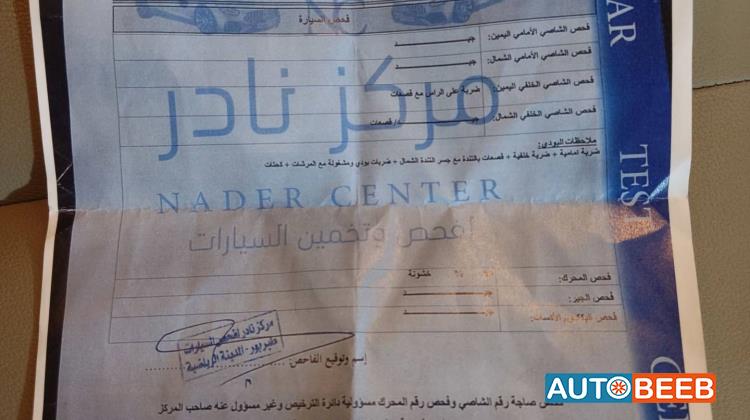 فحص السيارة
CAR
TEST
فحص الشاصي الأمامي اليمين: جيـــــــد
فحص الشاصي الأمامي الشمال: جيـــــــد
فحص الشاصي الخلفي اليمين: ضربة على الراس مع قصعات
فحص الشاصي الخلفي الشمال: جيـــــــد/قصعات
مركز نادر
ملاحظات البودي:
ضربة امامية + ضربة خلفية + قصعات بالتندة مع جسر التندة الشمال + ضربات بودي ومشغولة مع المرشات + كحتات
NADER CENTER
لفحص وتخمين السيارات
فحص المحرك: % خشونة
فحص الجير: جيـــــــد
مركز نادر لفحص السيارات
طبربور - المدينة الرياضية
إسم وتوقيع الفاحص:
صاجة رقم الشاصي وفحص رقم المحرك مسؤولية دائرة الترخيص وغير مسؤول عنه صاحب المركز
AUTOBEEB